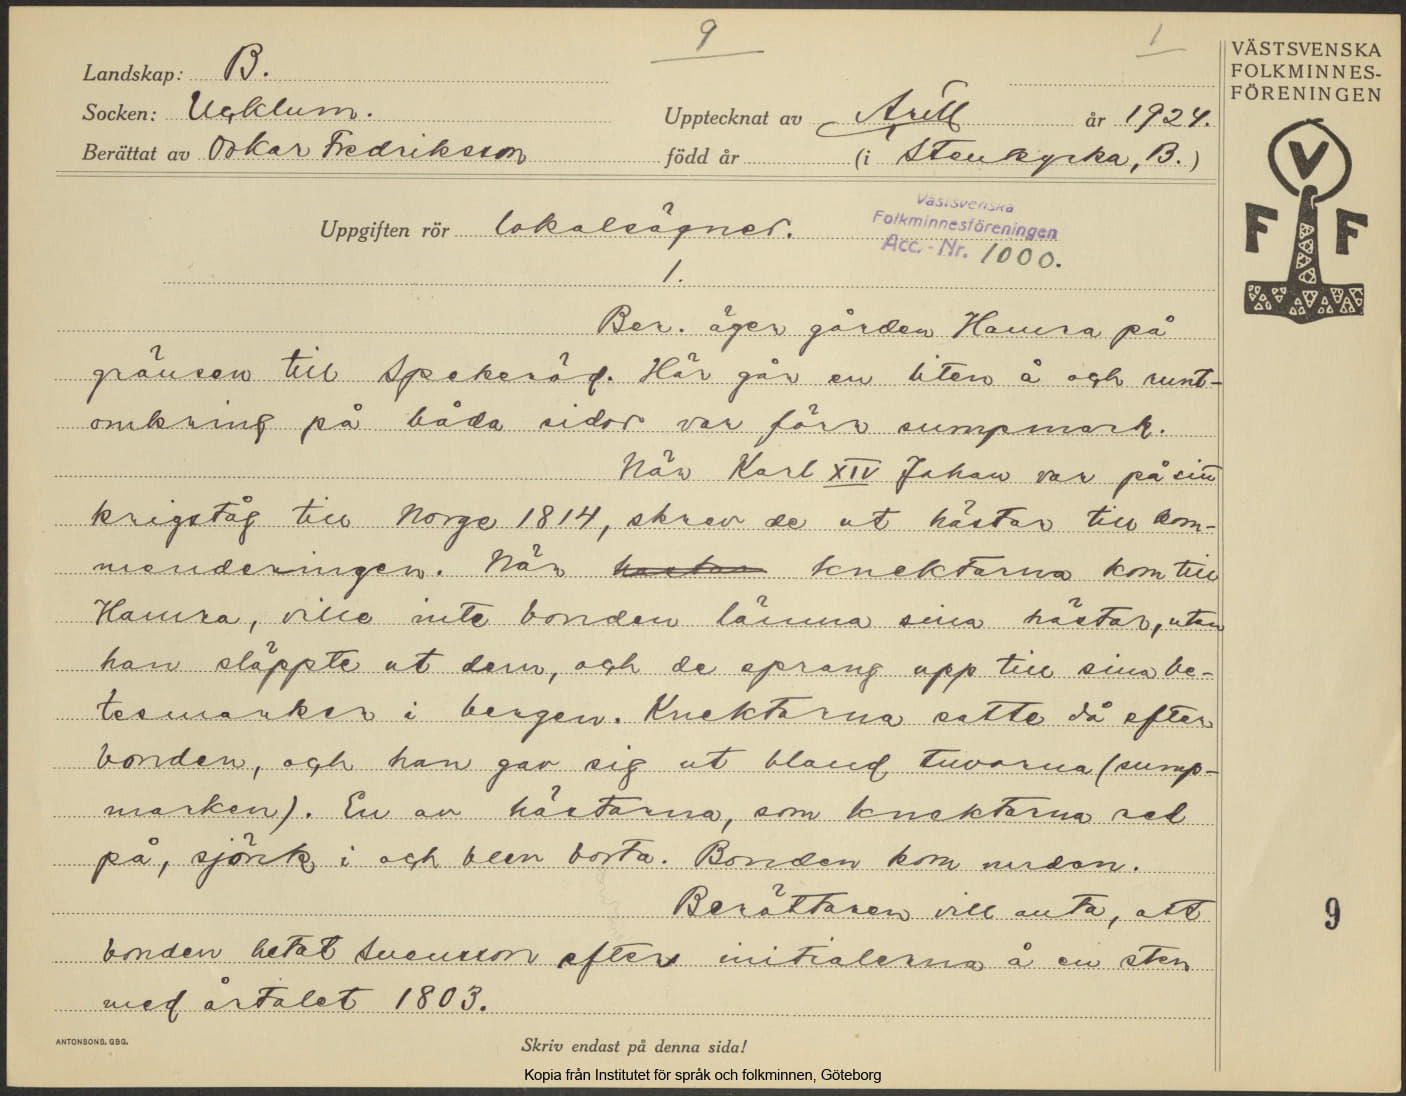 9
1
Landskap: B.
Socken: Ucklum.
Berättat av Oskar Fredriksson
Upptecknat av Arill år 1924.
född år (i Stenkyrka, B.)
VÄSTSVENSKA
FOLKMINNES-
FÖRENINGEN
V
F F
Uppgiften rör lokalsägner.
Västsvenska
Folkminnesföreningen
Acc.-Nr. 1000.
1.
Ber. äger gården Hamra på
gränsen till Spekeröd. Här går en liten å och runt-
omkring på båda sidor var förr sumpmark.
När Karl XIV Johan var på sitt
krigståg till Norge 1814, skrev de ut hästar till kom-
menderingen. När hästar knektarna kom till
Hamra, ville inte bonden lämna sina hästar, utan
han släppte ut dem, och de sprang upp till sina be-
tesmarker i bergen. Knektarna satte då efter
bonden, och han gav sig ut bland tuvorna (sump-
marken). En av hästarna, som knektarna red
på, sjönk i och blev borta. Bonden kom undan.
Berättaren vill anta, att
bonden hetat Svensson efter initialerna å en sten
med årtalet 1803.
9
ANTONSONS, GBG.
Skriv endast på denna sida!
Kopia från Institutet för språk och folkminnen, Göteborg